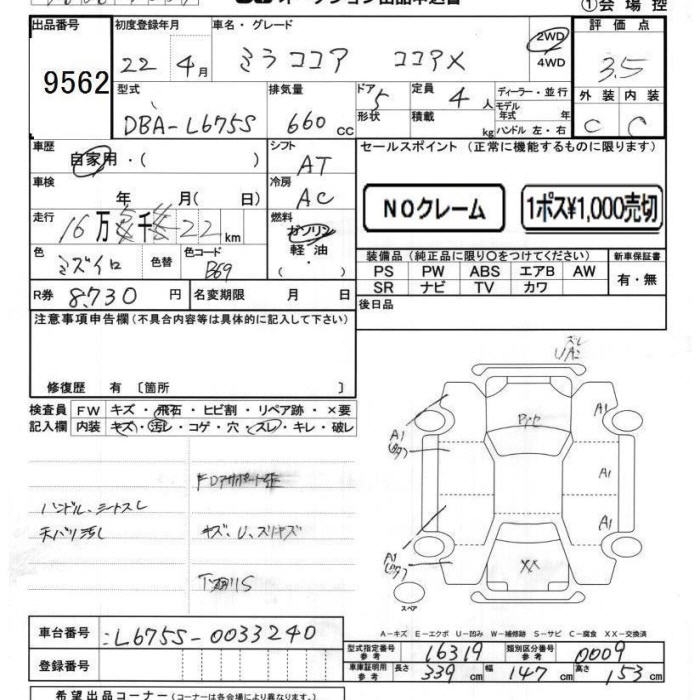 ①会場控
出品番号 初度登録年月 車名・グレード 評価点
9562 22年4月 ミラココア ココアX 2WD 4WD 3.5
型式 排気量 ドア 定員 ディーラー・並行 外装 内装
DBA-L675S 660cc 5 4人 モデル年式 年 C C
形状 積載 kg ハンドル 左・右
車歴 シフト セールスポイント(正常に機能するものに限ります)
自家用・( ) AT
車検 年 月(日) 冷房 AC
NOクレーム 1ポス¥1,000売切
走行 16万 千 22km 燃料 ガソリン 軽油・( )
色 ミズイロ 色替 色コード B69
装備品(純正品に限り○をつけてください) 新車保証書
PS PW ABS エアB AW 有・無
SR ナビ TV カワ
R券 8,730円 名変期限 月 日 後日品
注意事項申告欄(不具合内容等は具体的に記入して下さい)
修復歴 有 〔箇所 〕
検査員記入欄 FW キズ・飛石・ヒビ割・リペア跡・×要
内装 キズ・汚レ・コゲ・穴・スレ・キレ・破レ
ズレ
UA2
A1
A1
A1
A1
XX
スペア
ハンドル、シートスレ
天バリ汚レ
キズ、U、スリキズ
A-キズ E-エクボ U-凹み W-補修跡 S-サビ C-腐食 XX-交換済
車台番号 L675S-0033240
型式指定番号 参考 16319 類別区分番号 参考 0009
登録番号 車庫証明用 参考 長さ 339cm 幅 147cm 高さ 153cm
希望出品コーナー(コーナーは各会場により異なります)